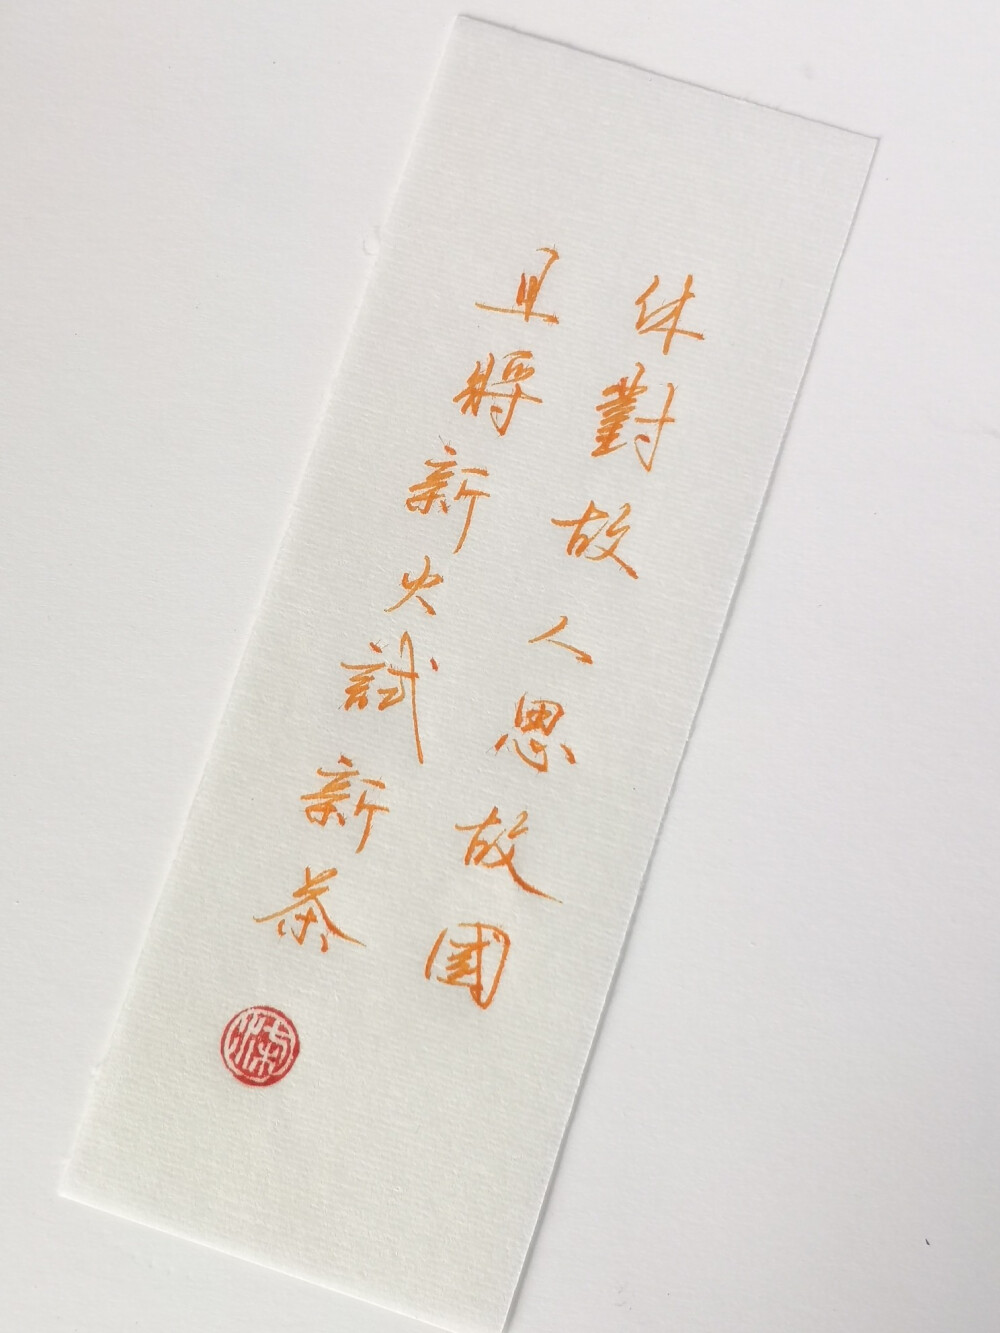 休對故人思故國
且將新火試新茶